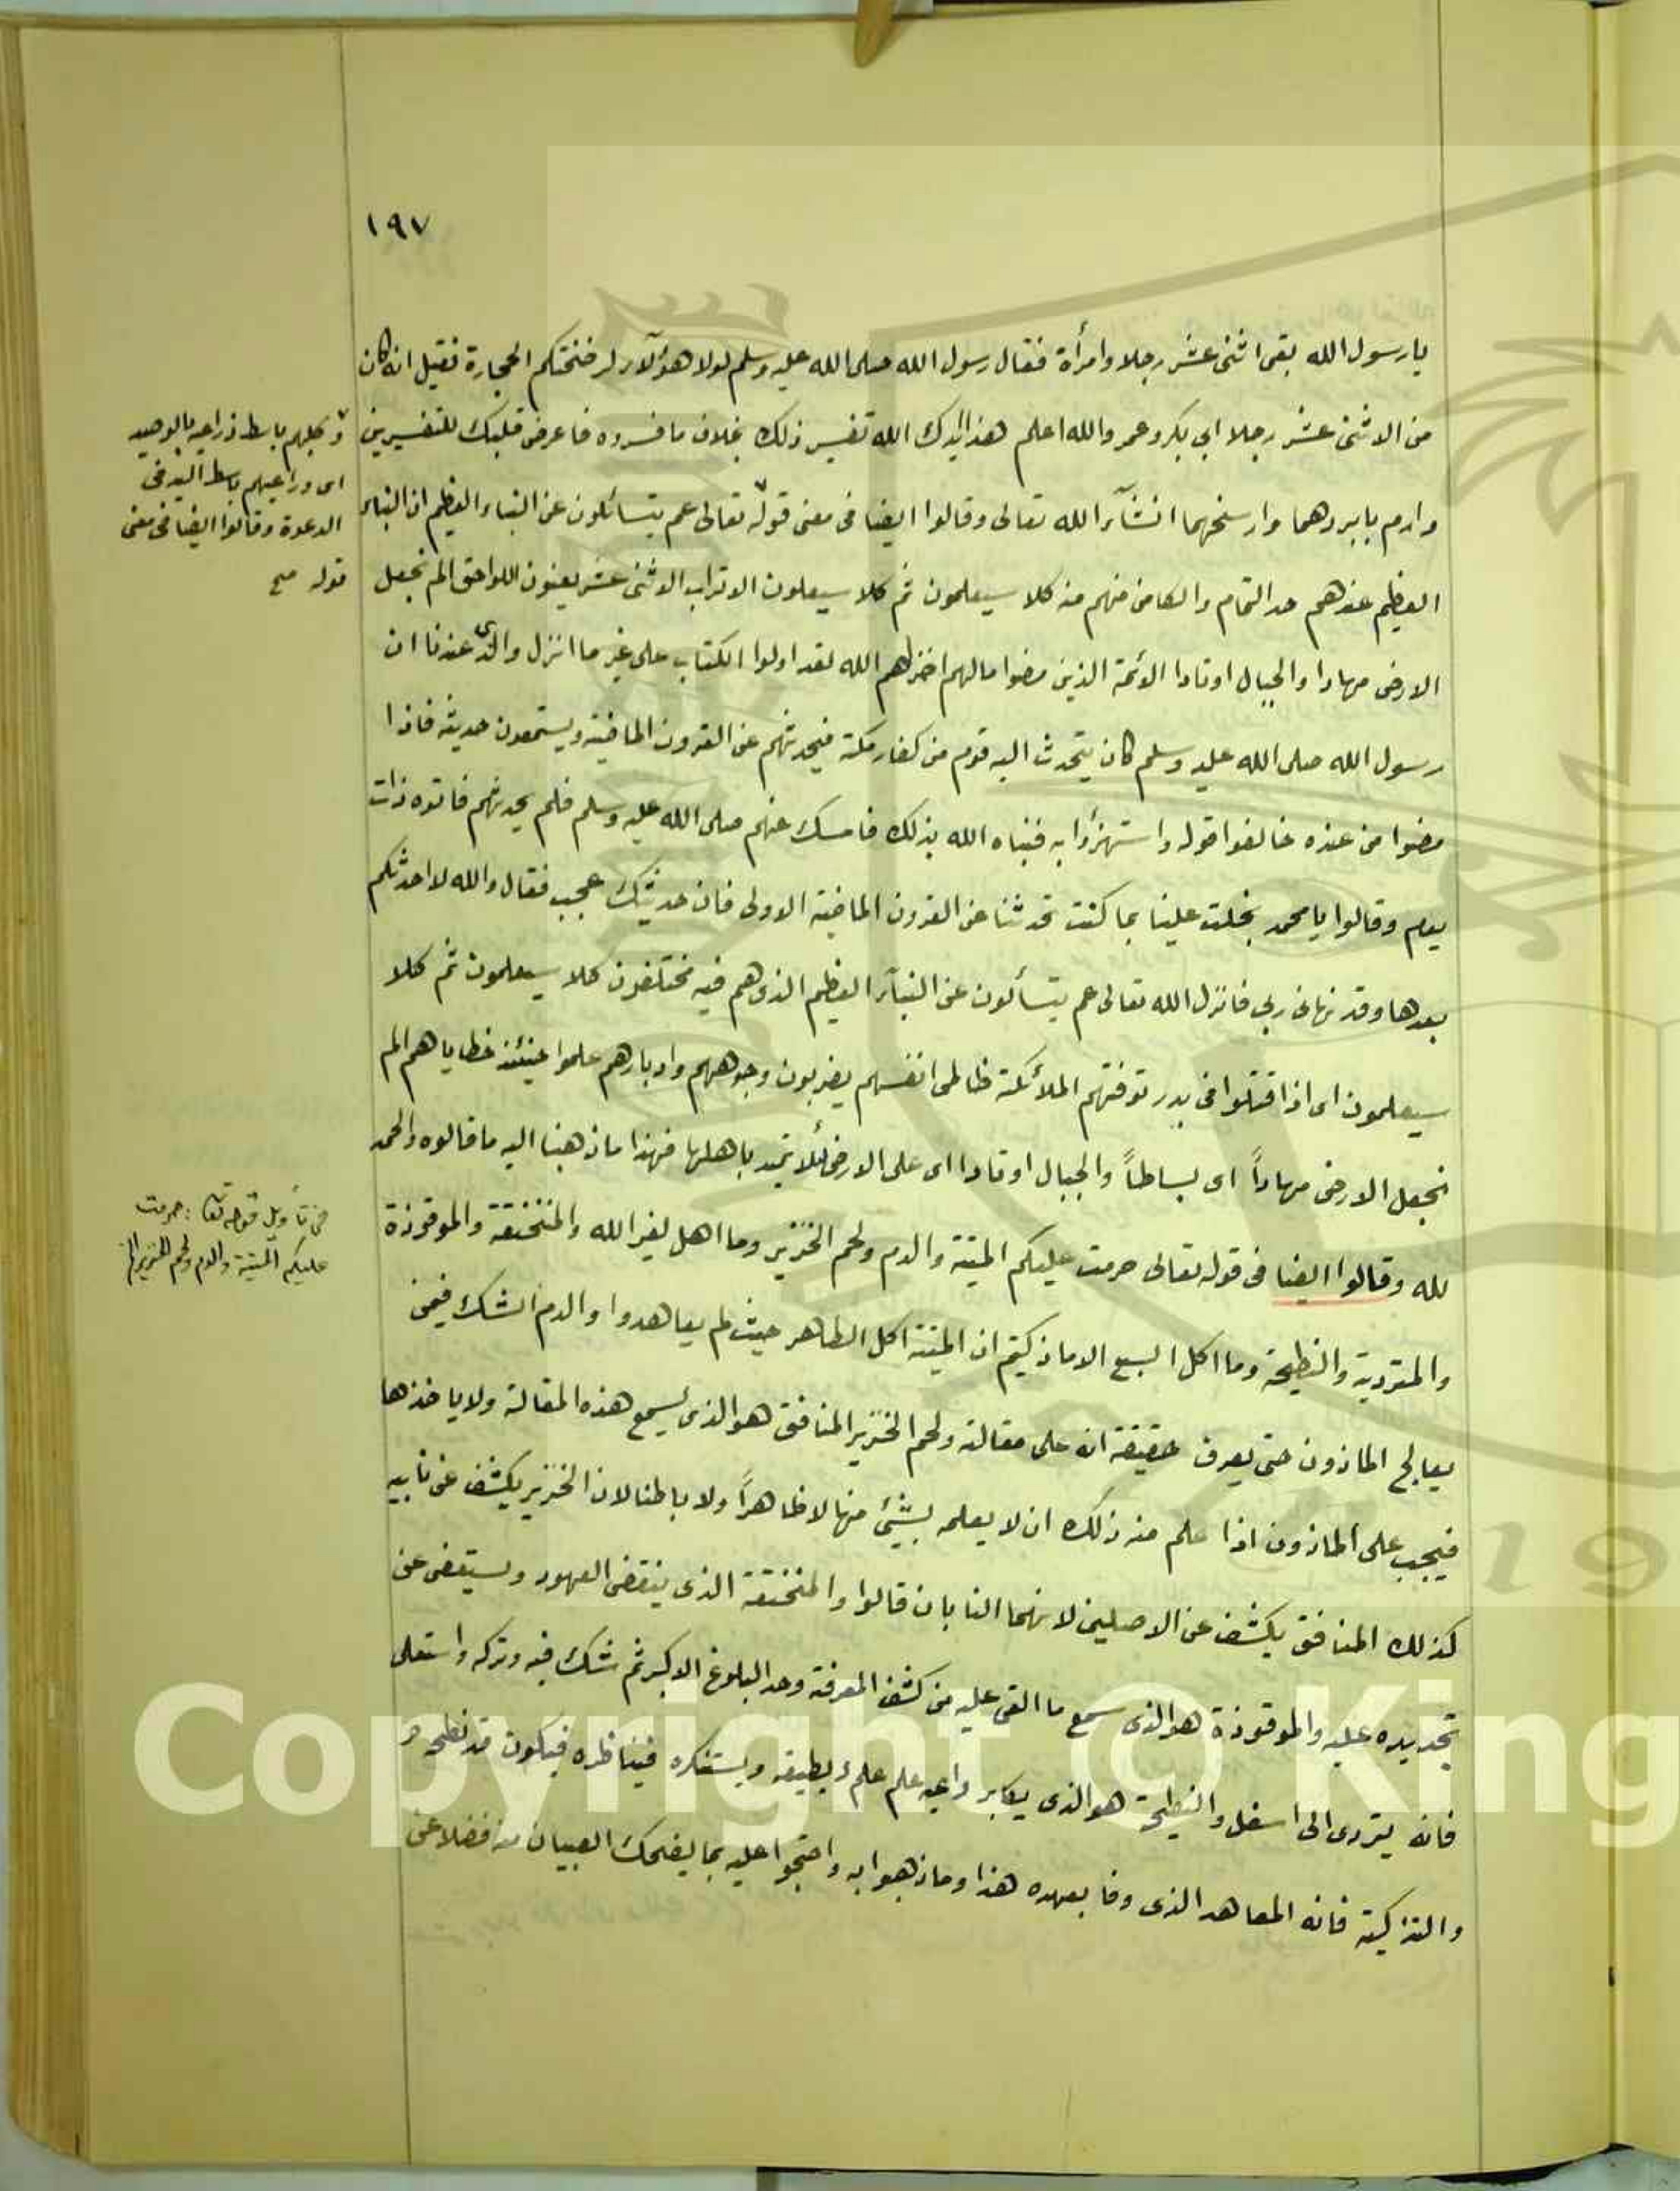 ١٩٧
يا رسول الله بقى اثنى عشر رجلا وامرأة فقال رسول الله صلى الله عليه وسلم لولا هؤلآء لرضختكم الحجارة فقيل انه كان
من الاثنى عشر رجلا ابى بكر وعمر والله اعلم هذا ايدك الله تفسير ذلك بخلاف ما فسروه فاعرض قلبك للتفسيرين
وارم بابردهما وارسخهما انشآء الله تعالى وقالوا ايضا فى معنى قوله تعالى عم يتسائلون عن النباء العظيم ان النباء
العظيم عندهم حد التمام والكامن منهم منه كلا سيعلمون ثم كلا سيعلون الاتراب الاثنى عشر يعنون اللواحق الم نجعل
الارض مهادا والجبال اوتادا الائمة الذين مضوا مالهم اخزاهم الله لقد اولوا الكتاب على غير ما انزل والذى عندنا ان
رسول الله صلى الله عليه وسلم كان يتحدث اليه قوم من كفار مكة فيحدثهم عن القرون الماضية ويستمعون حديثه فاذا
مضوا من عنده خالفوا قوله واستهزؤا به فنباه الله بذلك فامسك عنهم صلى الله عليه وسلم فلم يحدثهم فاتوه ذات
يوم وقالوا يا محمد بخلت علينا بما كنت تحدثنا عن القرون الماضية الاولى فان حديثك عجيب فقال والله لا احدثكم
بعدها وقد نهانى ربى فانزل الله تعالى عم يتسألون عن النبآء العظيم الذى هم فيه مختلفون كلا سيعلمون ثم كلا
سيعلمون اى اذا قتلوا فى بدر توفتهم الملائكة ظالمى انفسهم يضربون وجوههم وادبارهم علموا حينئذ خطاياهم الم
نجعل الارض مهاداً اى بساطاً والجبال اوتادا اى على الارض لئلا تميد باهلها فهذا ما ذهبنا اليه ما قالوه والحمد
لله وقالوا ايضا فى قوله تعالى حرمت عليكم الميتة والدم ولحم الخنزير وما اهل لغير الله والمنخنقة والموقوذة
والمتردية والنطيحة وما اكل السبع الا ما ذكيتم ان الميتة اكل الظاهر حيث لم يعاهدوا والدم الشك فيمن
يعالج الماذون حتى يعرف حقيقة انه على مقالته ولحم الخنزير المنافق هو الذى يسمع هذه المقالة ولا ياخذها
فيجب على الماذون اذا علم منه ذلك ان لا يعلمه بشئ منها لا ظاهراً ولا باطنا لان الخنزير يكشف عن نابيه
كذلك المنافق يكشف عن الاصلين لانهما النابان قالوا والمنخنقة الذى ينقض العهود ويستعفى عن
تجديده عليه والموقوذة هو الذى سمع ما القى عليه من كشف المعرفة وحد البلوغ الاكبر ثم شك فيه وتركه واستعلى
فانه يتردى الى اسفل والنطيحة هو الذى يكابر داعيه علم علم لا يطيقه ويستنكره فيناظره فيكون قد نطحه و
والتذكية فانه المعاهد الذى وفا بعهده هذا وما ذهبوا به واحتجوا عليه بما يضحك الصبيان منه فضلا عن
وكلبهم باسط ذراعيه بالوصيد
اى وداعيهم باسط اليد فى
الدعوة وقالوا ايضا فى معنى
قوله صح
فى تأويل قوله تعا : حرمت
عليكم الميتة والدم ولحم الخنزير الخ
Copyright © King